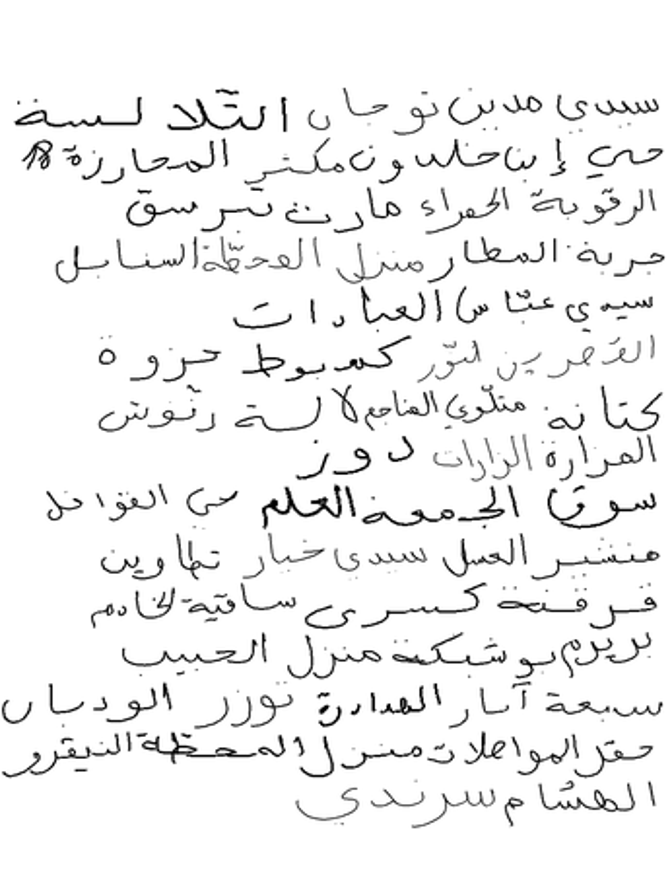 سيدي مدين نوجان التلالسة
حي إبن خلدون مكثر المحارزة 18
الرقوبة الحمراء مارث تبرسق
جربة المطار منزل المحطّة السنابل
سيدي عبّاس العبادات
القصرين لتوّر كمبوط حزوة
كتانة متلّوي المناجم لالسة رنّوش
المرازة الزارات دوز
سوق الجمعة العلم حي القوافل
منشير العسل سيدي خيار تطاوين
قرقنة كسرى ساقية الخادم
بريرم بوشبكة منزل الحبيب
سبعة آبار الهدادرة توزر الوديان
حقل المواصلات منزل المحطة النيقرو
الهشام سرندي